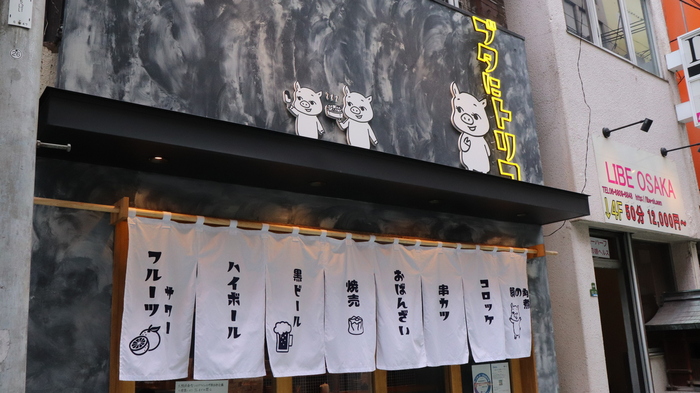 ブタにトリコ
LIBE OSAKA
4F 60分 12,000円~
フルーツ
サワー
ハイボール
黒ビール
焼売
おばんざい
串カツ
コロッケ
豚の角煮